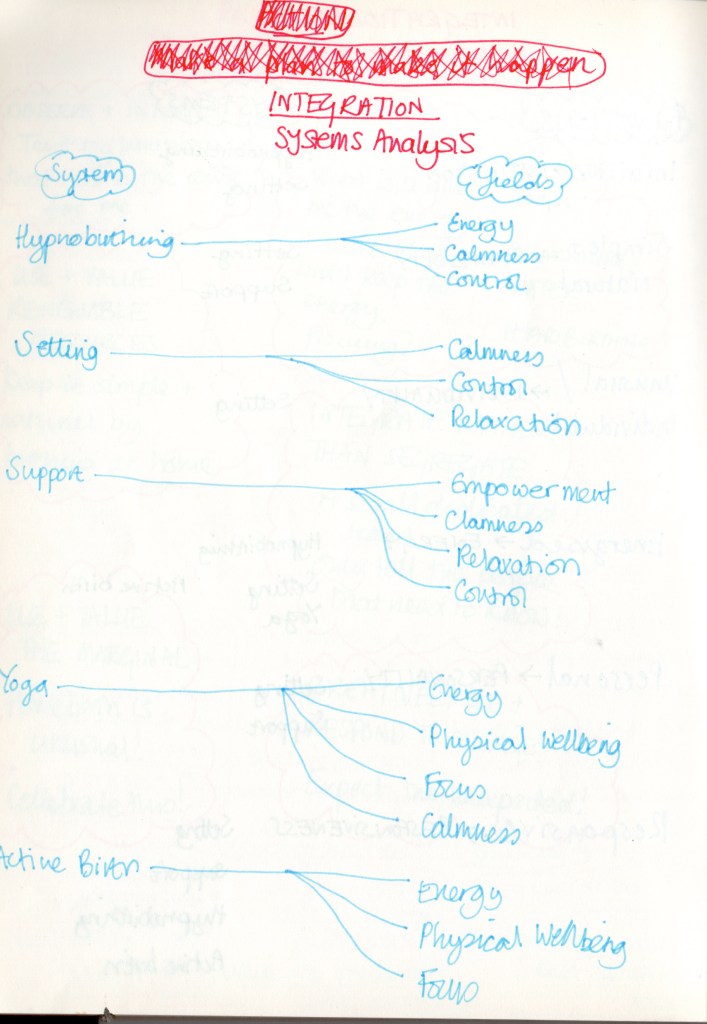 Make a plan to make it happen
INTEGRATION
Systems Analysis
System Yields
Hypnobirthing
Energy
Calmness
Control
Setting
Calmness
Control
Relaxation
Support
Empowerment
Clamness
Relaxation
Control
Yoga
Energy
Physical Wellbeing
Focus
Calmness
Active Birth
Energy
Physical Wellbeing
Focus